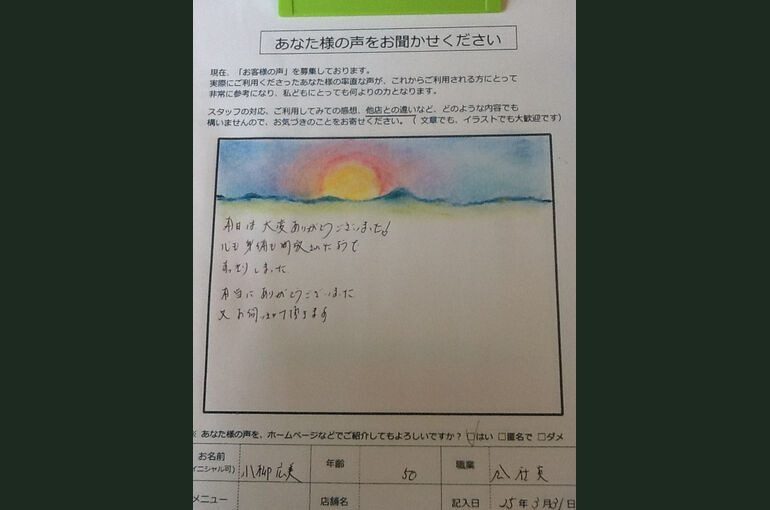 あなた様の声をお聞かせください
現在、「お客様の声」を募集しております。
実際にご利用くださったあなた様の率直な声が、これからご利用される方にとって
非常に参考になり、私どもにとっても何よりの力となります。
スタッフの対応、ご利用してみての感想、他店との違いなど、どのような内容でも
構いませんので、お気づきのことをお寄せください。（文章でも、イラストでも大歓迎です）
本日は大変ありがとうございました!
心も身体も
しました
本当にありがとうございました
又お伺いさせて頂きます
※あなた様の声を、ホームページなどでご紹介してもよろしいですか？ □はい □匿名で □ダメ
お名前 小柳広美 年齢 50 職業 会社員
イニシャル可)
メニュー 店舗名 記入日 25年3月31日